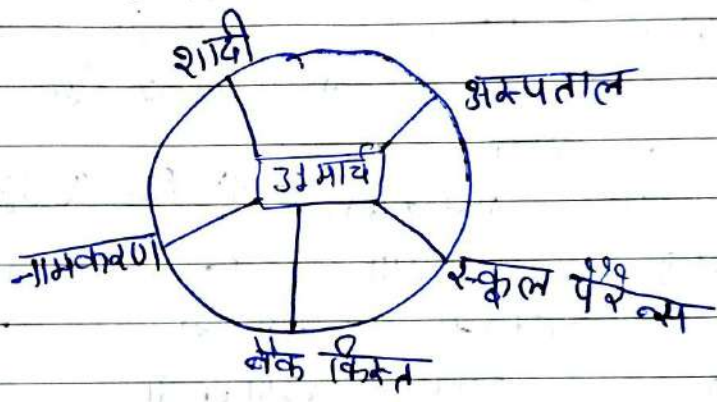 शादी
अस्पताल
31 मार्च
नामकरण
स्कूल पैरेन्टस
बैंक किस्त